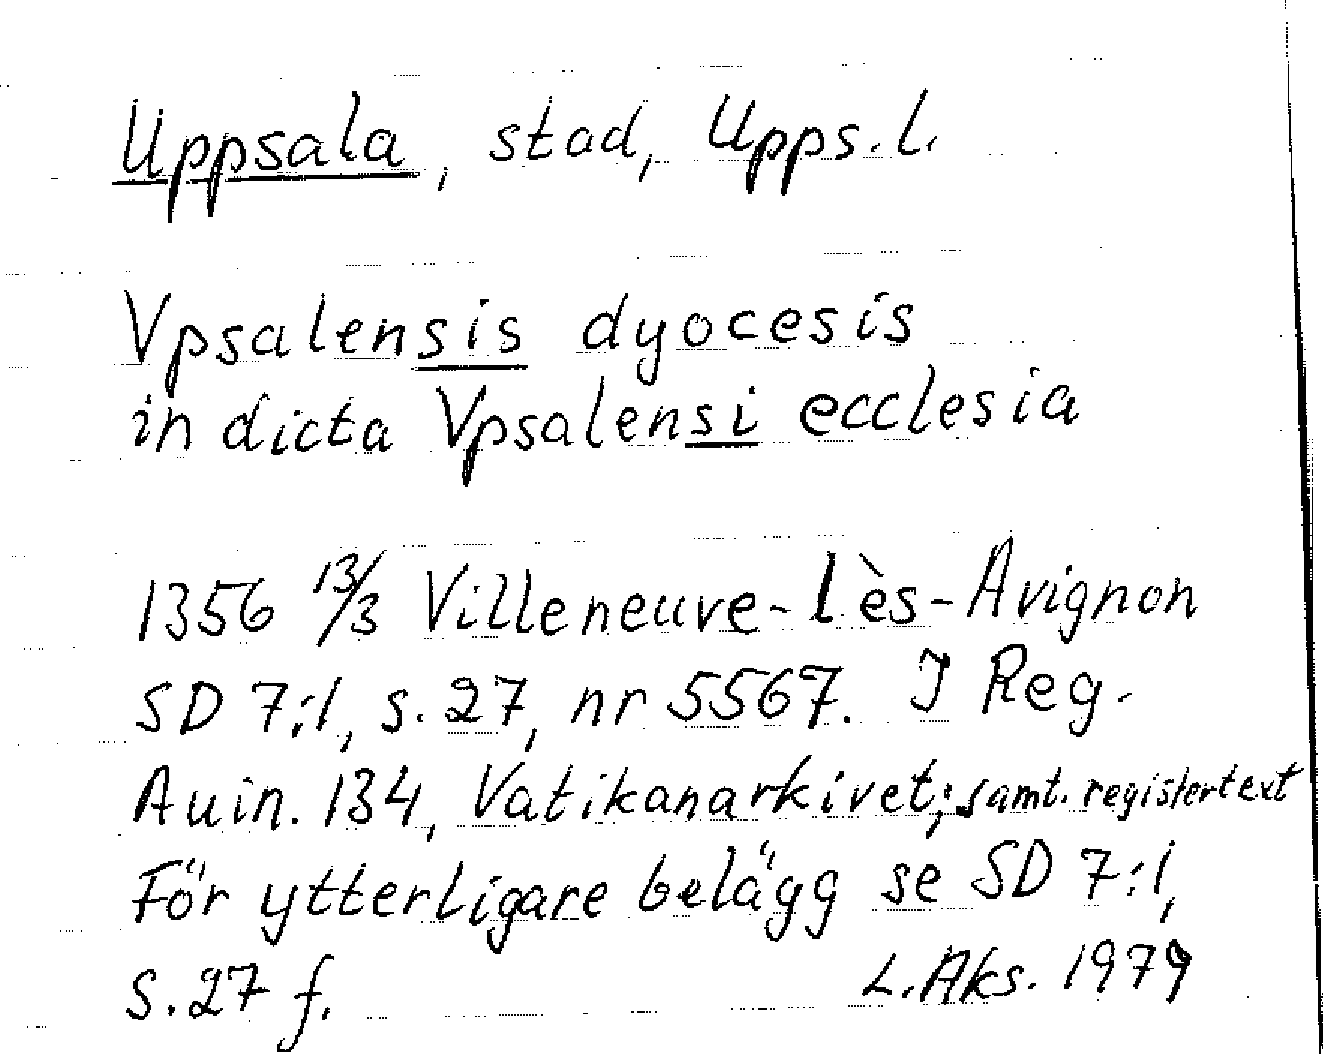 Uppsala, stad, Upps.l.
Vpsalensis dyocesis
in dicta Vpsalensi ecclesia
1356 13/3 Villeneuve-lès-Avignon
SD 7:1, s. 27, nr 5567. I Reg.
Auin. 134, Vatikanarkivet; samt. registertext
För ytterligare belägg se SD 7:1,
s. 27 f. L. Aks. 1979